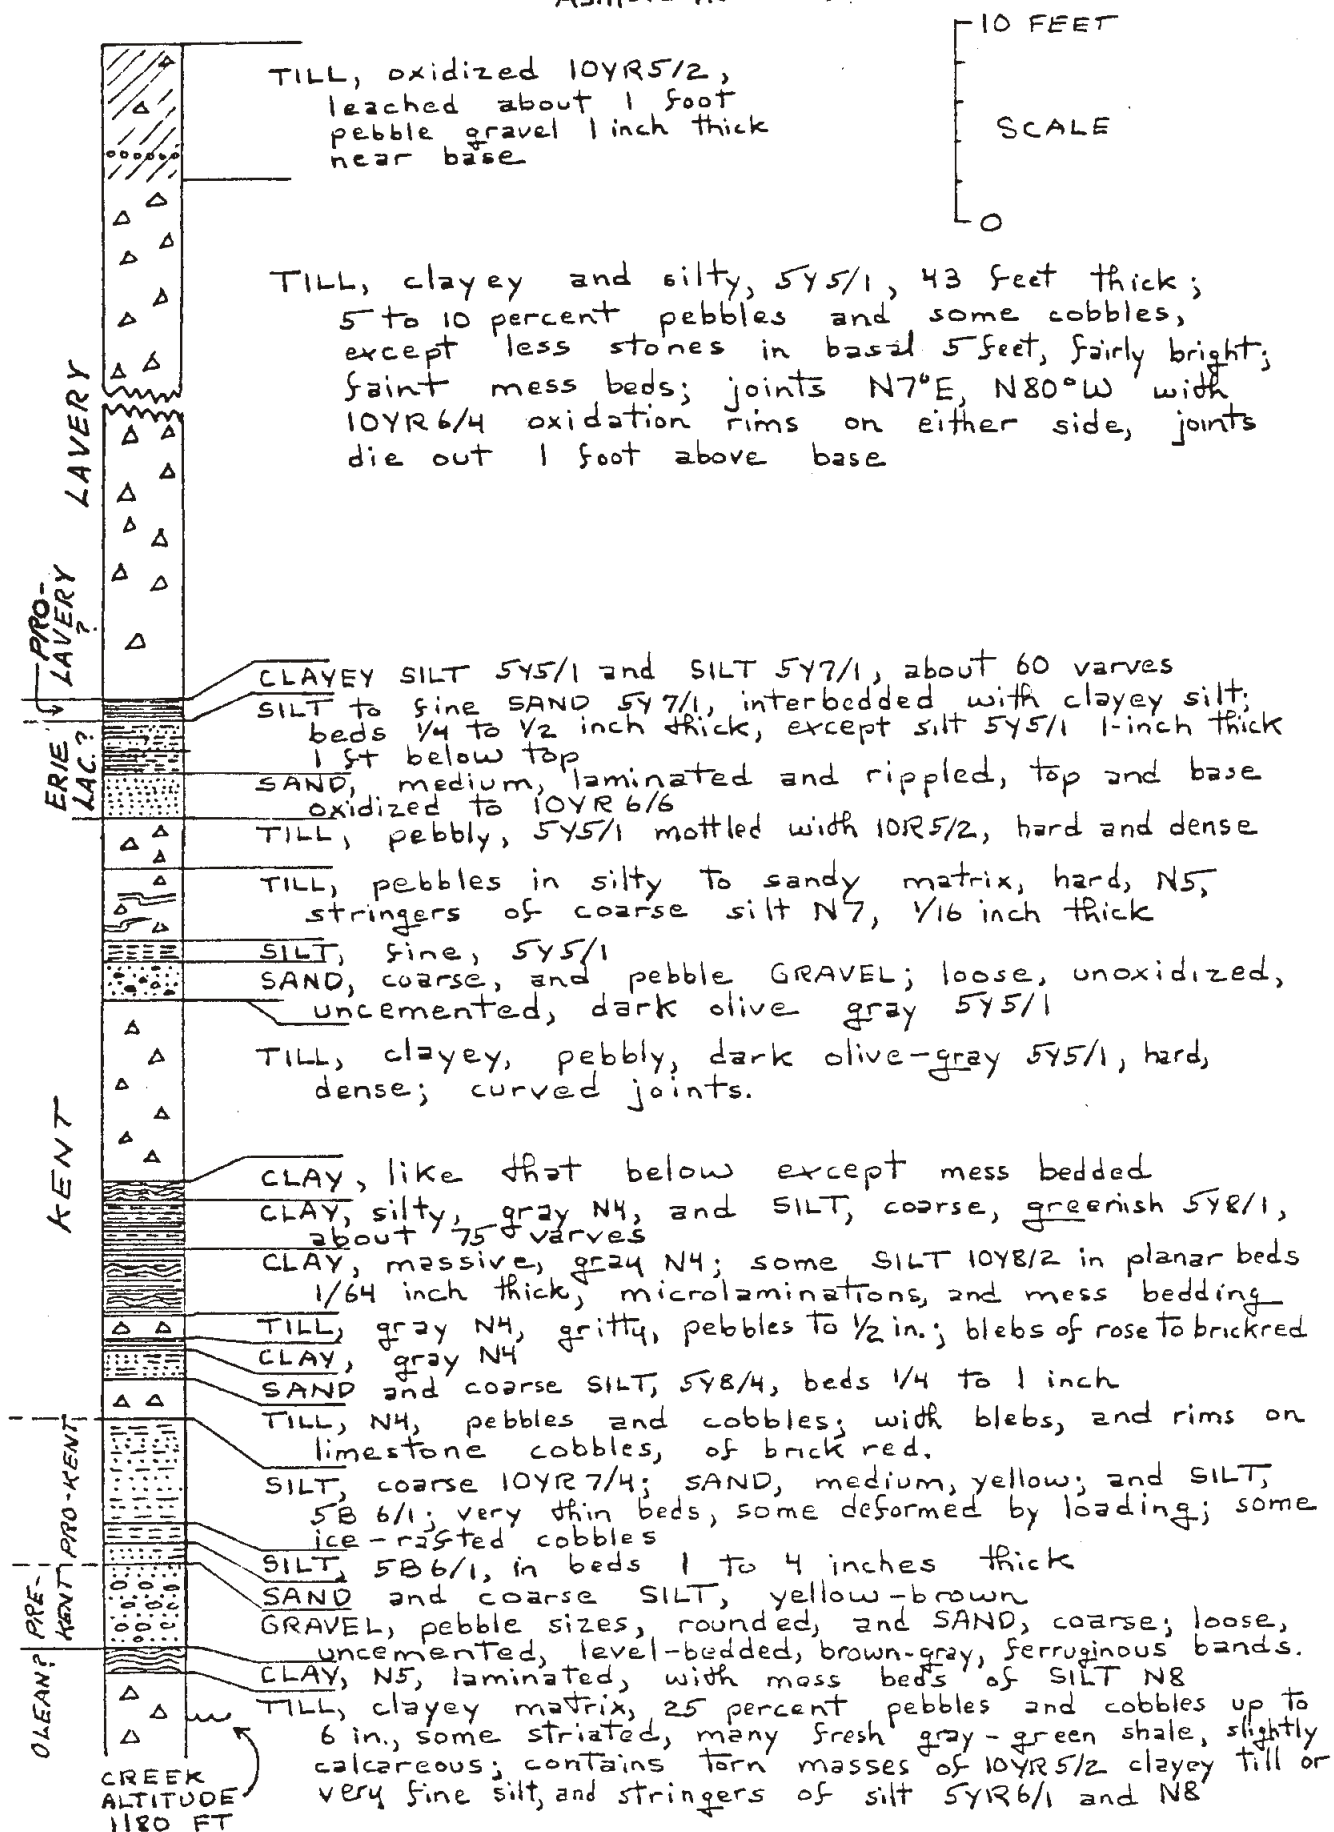 10 FEET
SCALE
0
TILL, oxidized 10YR5/2,
leached about 1 foot
pebble gravel 1 inch thick
near base
TILL, clayey and silty, 5Y5/1, 43 feet thick;
5 to 10 percent pebbles and some cobbles,
except less stones in basal 5 feet, fairly bright;
faint mess beds; joints N7°E, N80°W with
10YR6/4 oxidation rims on either side, joints
die out 1 foot above base
LAVERY
PRO-
LAVERY
?
CLAYEY SILT 5Y5/1 and SILT 5Y7/1, about 60 varves
SILT to fine SAND 5Y7/1, interbedded with clayey silt;
beds 1/4 to 1/2 inch thick, except silt 5Y5/1 1-inch thick
1 ft below top
ERIE
LAC.?
SAND, medium, laminated and rippled, top and base
oxidized to 10YR 6/6
TILL, pebbly, 5Y5/1 mottled with 10R5/2, hard and dense
TILL, pebbles in silty to sandy matrix, hard, N5,
stringers of coarse silt N7, 1/16 inch thick
SILT, fine, 5Y5/1
SAND, coarse, and pebble GRAVEL; loose, unoxidized,
uncemented, dark olive gray 5Y5/1
TILL, clayey, pebbly, dark olive-gray 5Y5/1, hard,
dense; curved joints.
KENT
CLAY, like that below except mess bedded
CLAY, silty, gray N4, and SILT, coarse, greenish 5Y8/1,
about 75 varves
CLAY, massive, gray N4; some SILT 10Y8/2 in planar beds
1/64 inch thick, microlaminations, and mess bedding
TILL, gray N4, gritty, pebbles to 1/2 in.; blebs of rose to brickred
CLAY, gray N4
SAND and coarse SILT, 5Y8/4, beds 1/4 to 1 inch
TILL, N4, pebbles and cobbles; with blebs, and rims on
limestone cobbles, of brick red.
PRO-KENT
SILT, coarse 10YR 7/4; SAND, medium, yellow; and SILT,
5B 6/1; very thin beds, some deformed by loading; some
ice-rafted cobbles
SILT, 5B6/1, in beds 1 to 4 inches thick
SAND and coarse SILT, yellow-brown
PRE-
KENT
GRAVEL, pebble sizes, rounded, and SAND, coarse; loose,
uncemented, level-bedded, brown-gray, ferruginous bands.
OLEAN?
CLAY, N5, laminated, with mess beds of SILT N8
TILL, clayey matrix, 25 percent pebbles and cobbles up to
6 in., some striated, many fresh gray-green shale, slightly
calcareous; contains torn masses of 10YR5/2 clayey till or
very fine silt, and stringers of silt 5YR6/1 and N8
CREEK
ALTITUDE
1180 FT